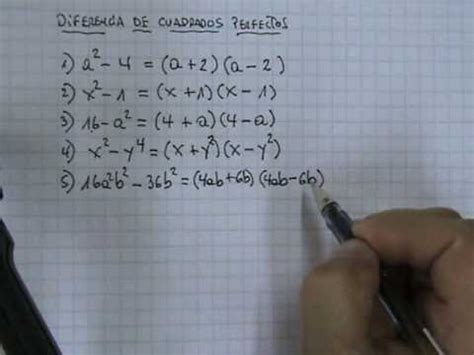 DIFERENCIA DE CUADRADOS PERFECTOS
1) a² - 4 = (a + 2) (a - 2)
2) x² - 1 = (x + 1) (x - 1)
3) 16 - a² = (4 + a) (4 - a)
4) x² - y⁴ = (x + y²) (x - y²)
5) 16a²b² - 36b² = (4ab + 6b) (4ab - 6b)